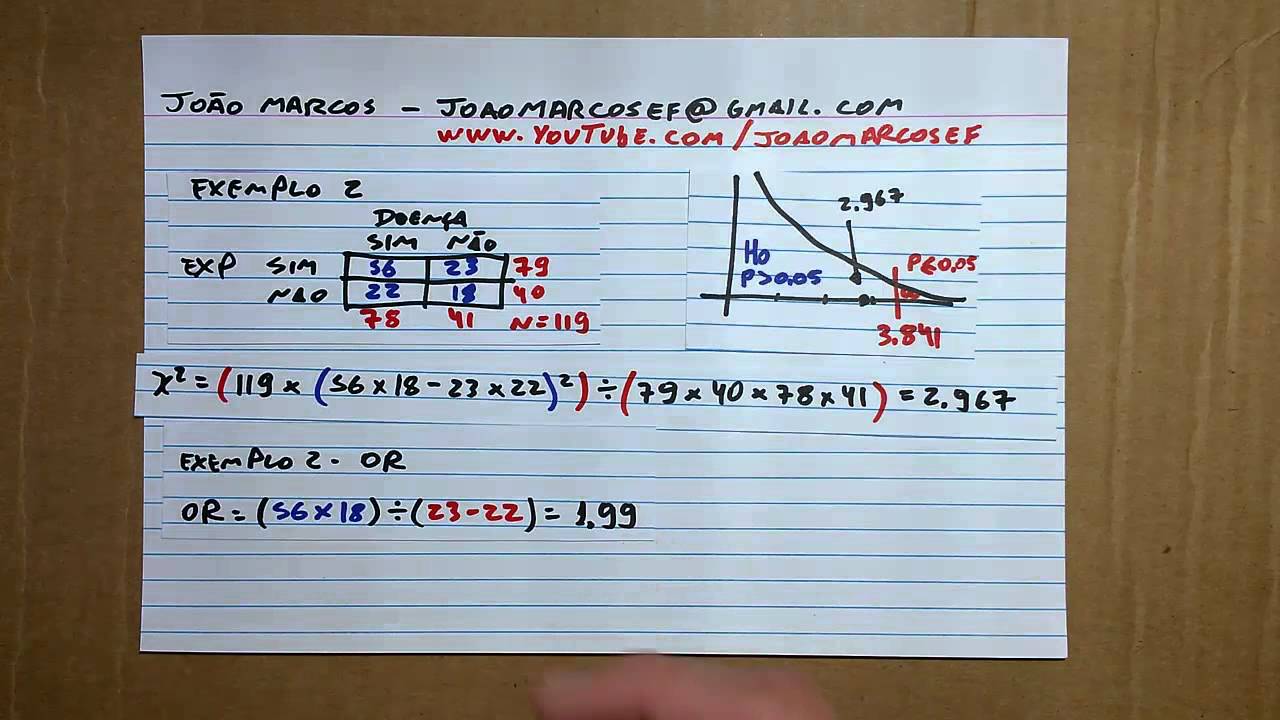 JOÃO MARCOS - JOAOMARCOSEF@GMAIL.COM
WWW.YOUTUBE.COM/JOAOMARCOSEF
EXEMPLO 2
DOENÇA
SIM NÃO
EXP SIM 56 23 79
NÃO 22 18 40
78 41 N=119
2.967
H0
P>0.05
P≤0.05
3.841
X²=(119×(56×18-23×22)²)÷(79×40×78×41)=2.967
EXEMPLO 2 - OR
OR=(56×18)÷(23-22)=1.99